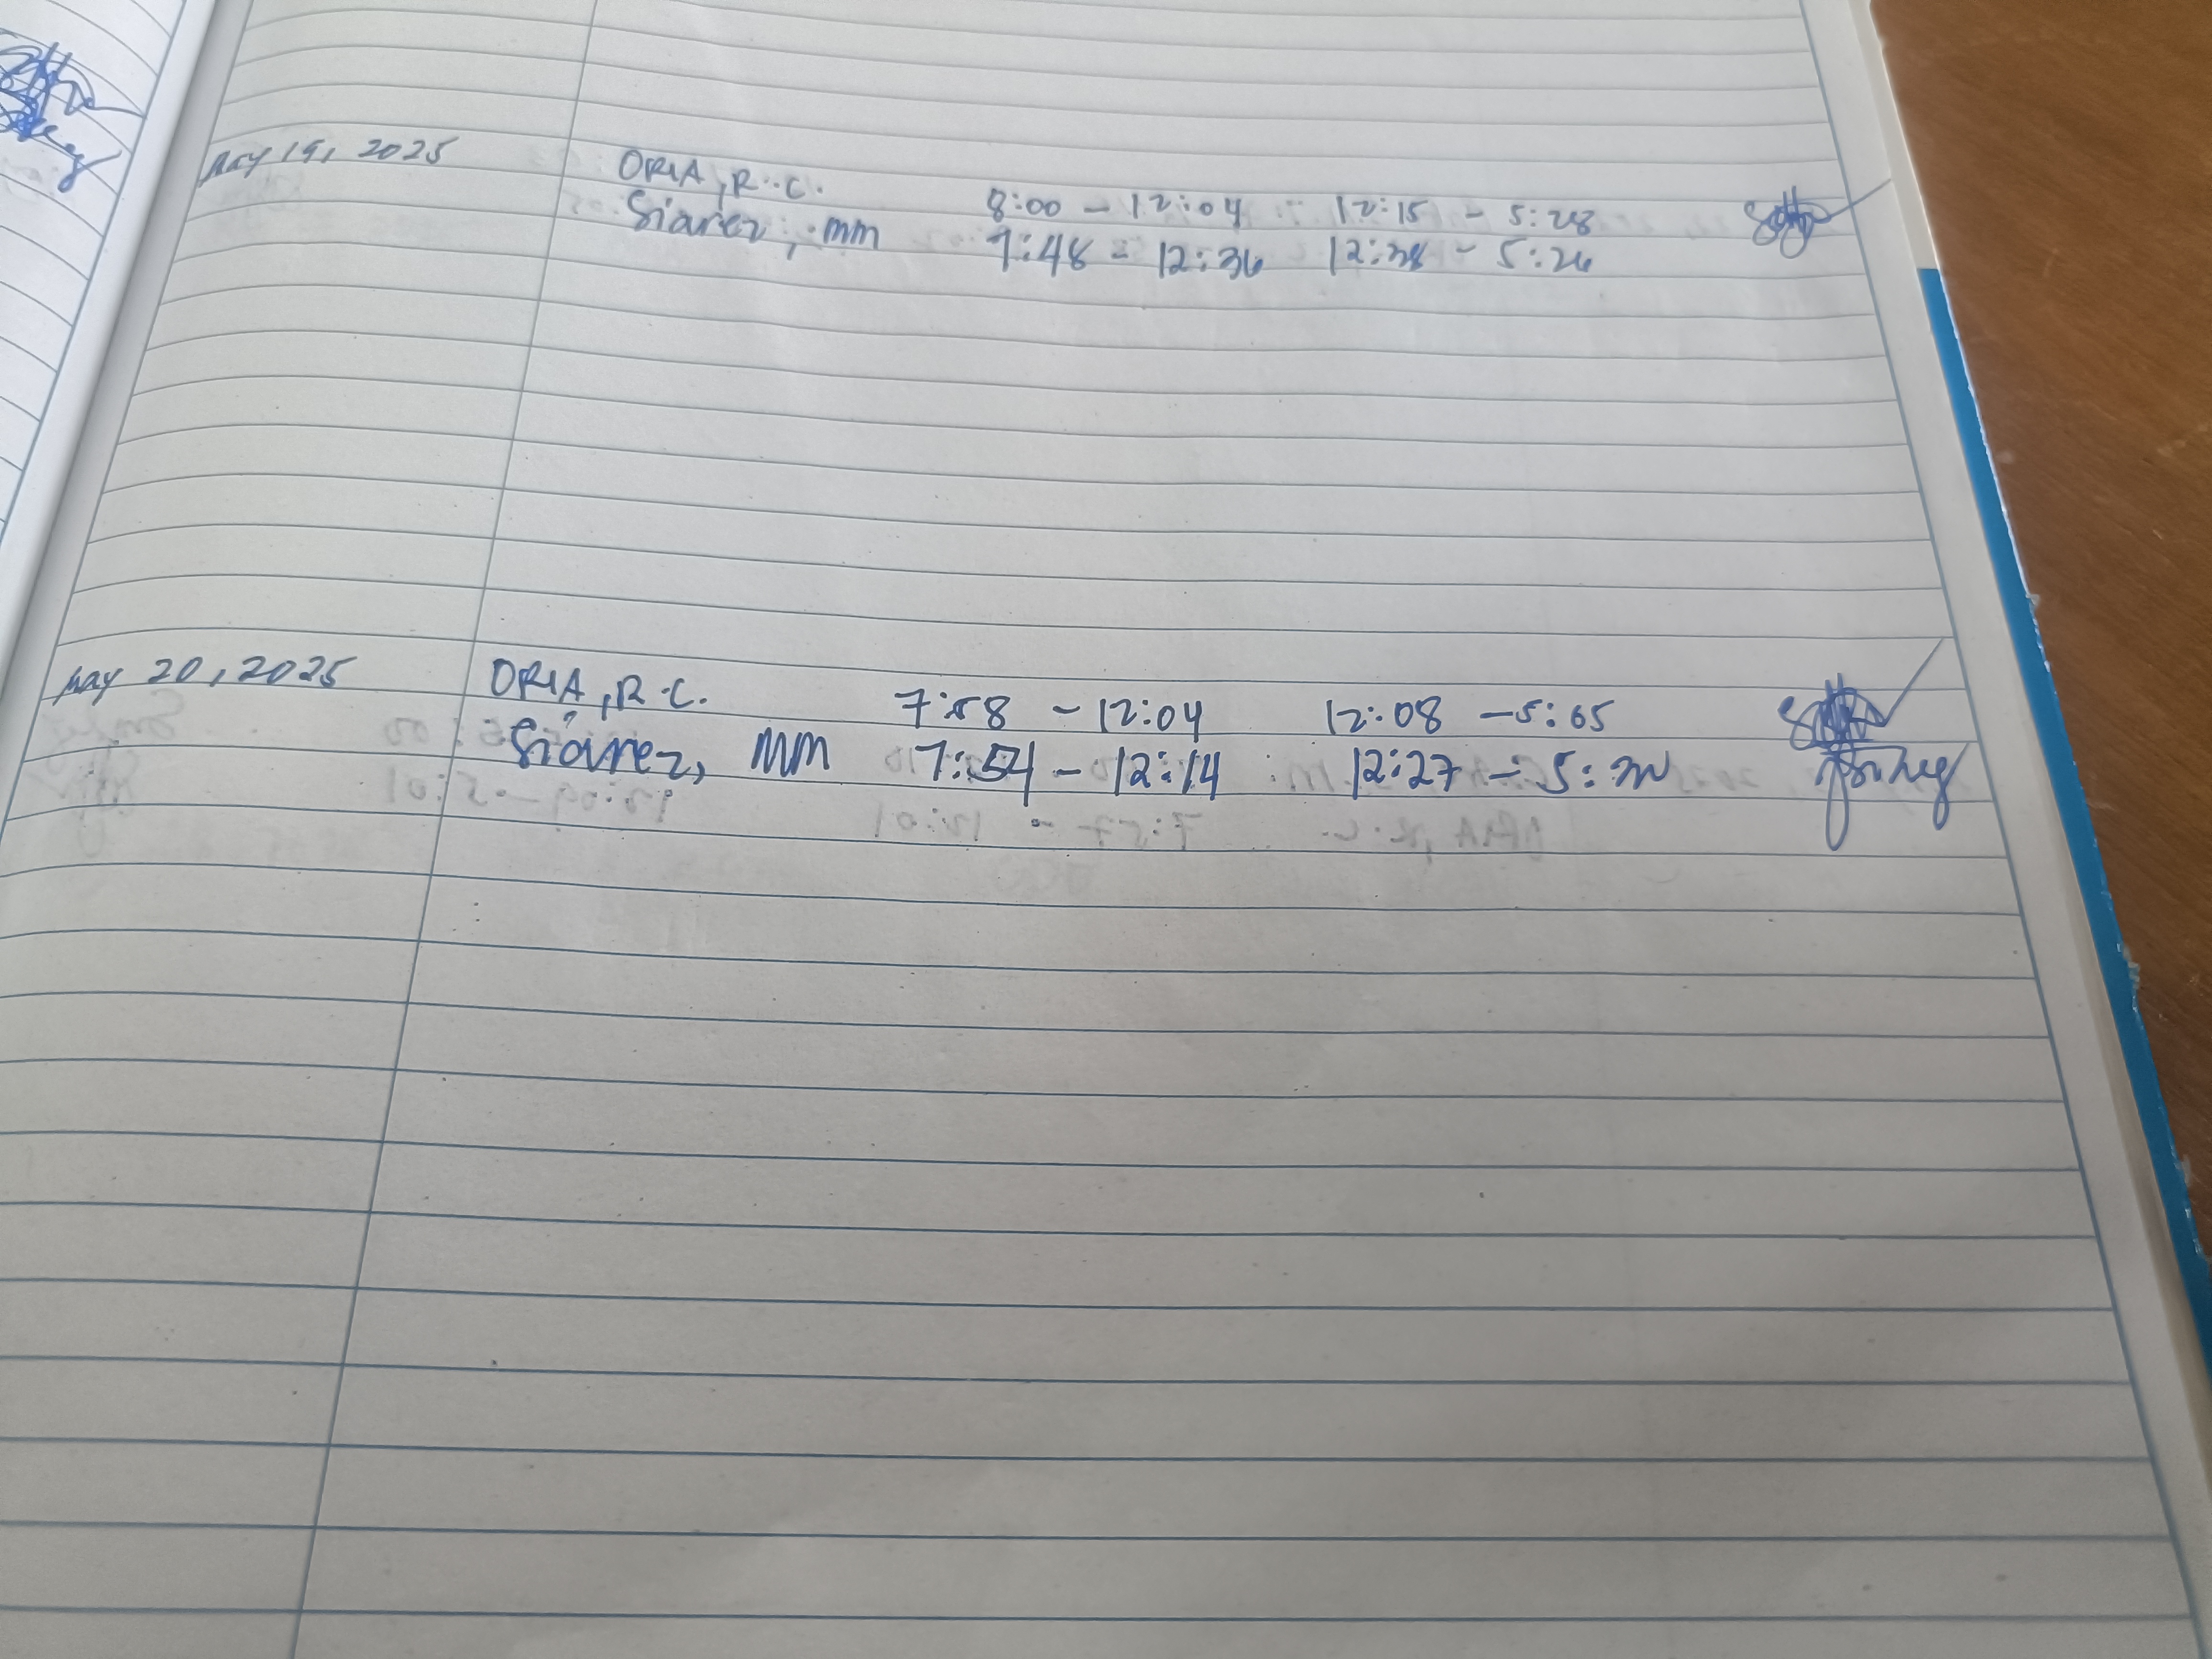 May 19, 2025
ORIA, R.C. 8:00 - 12:04 12:15 - 5:28
Siarez, mm 7:48 - 12:36 12:38 - 5:26
May 20, 2025 ORIA, R.C. 7:58 - 12:04 12:08 - 5:05
Siarez, MM 7:54 - 12:14 12:27 - 5: